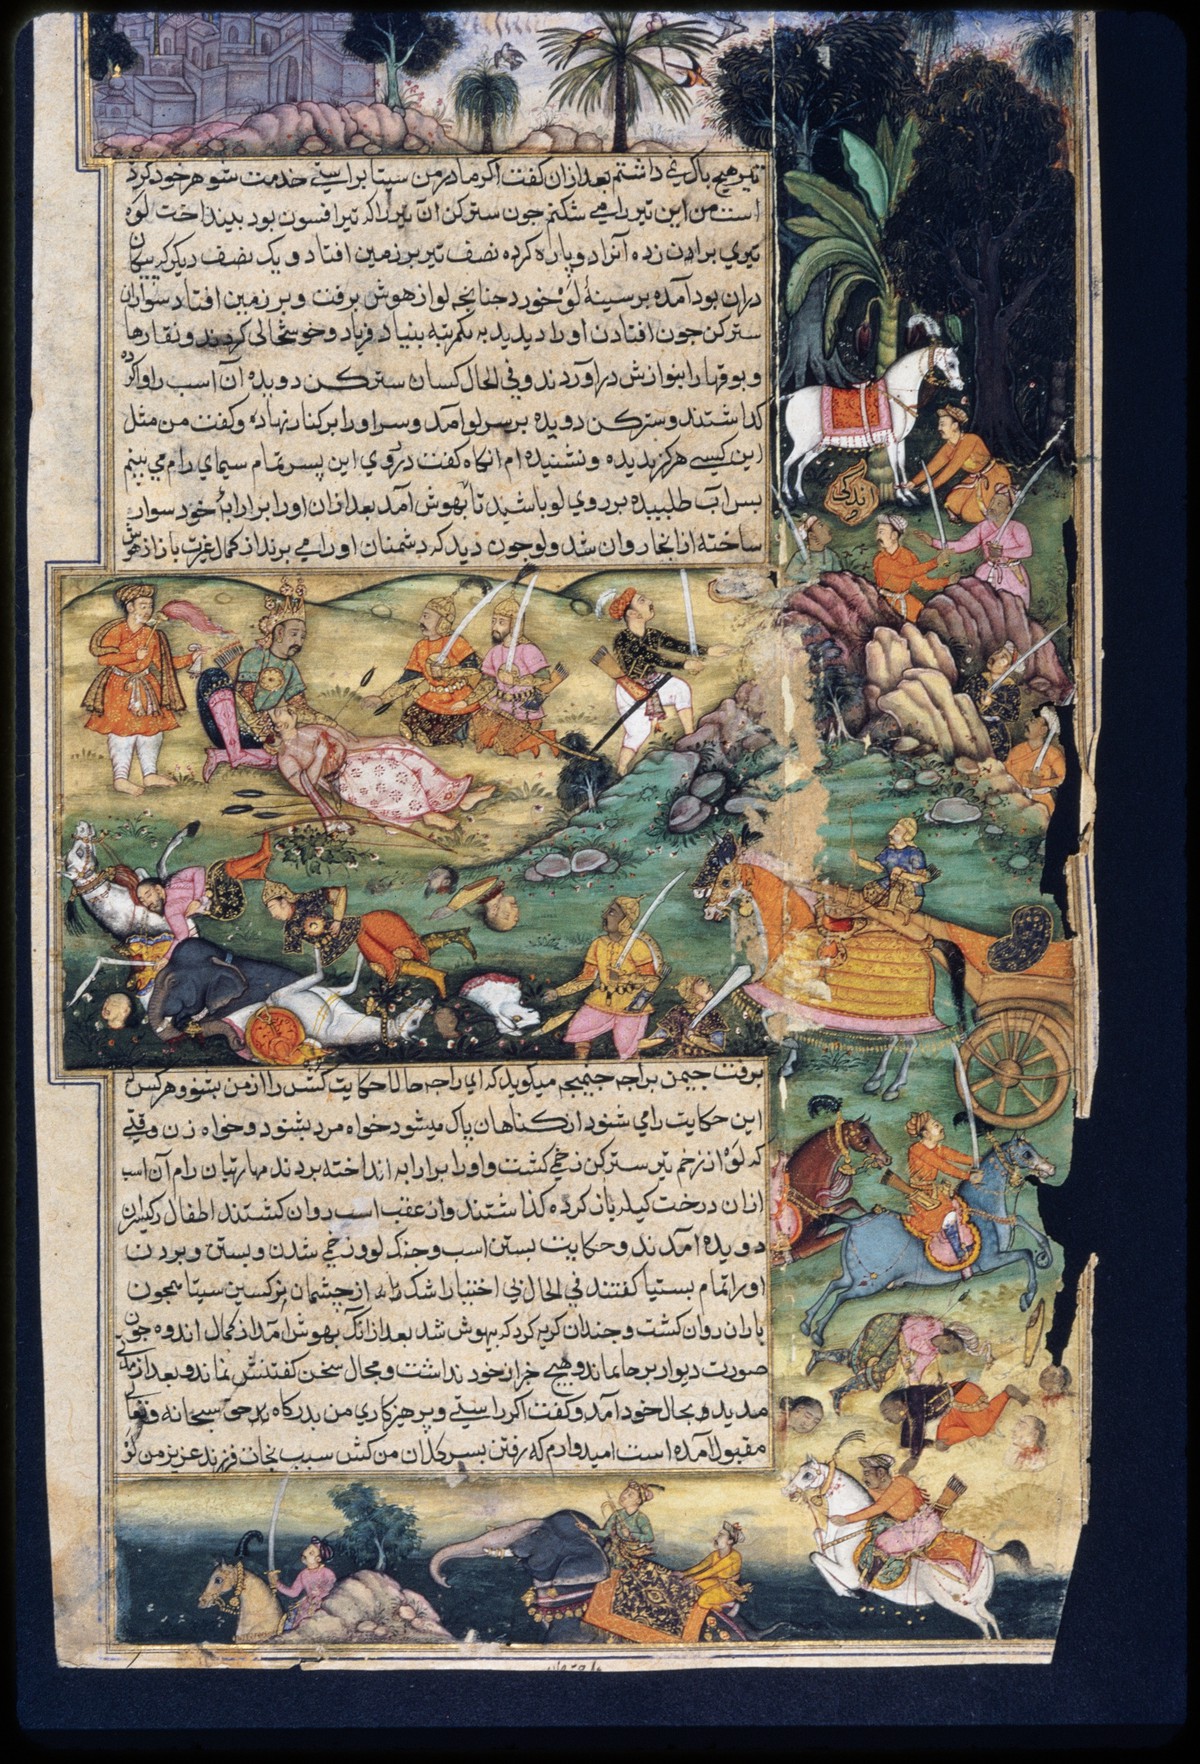 تیر هیچ باک نمی داشتم بعد ازان گفت اگر مادر من سیتا براستی خدمت شوهر خود کرده
است من این تیر را می شکنم چون سترکن آن تیر را که تیر افسون بود بینداخت لوه
تیری بران زده آنرا دو پاره کرده نصف تیر بر زمین افتاد و یک نصف دیگر که پیکان
دران بود آمده بر سینهٔ لوه خورد چنانچه لو از هوش برفت و بر زمین افتاد سواران
سترکن چون افتادن او را دیدند به یکمرتبه بنیاد فریاد و خوشحالی کردند و نقارها
و بوقها را بنوازش دراوردند و فی الحال کسان سترکن دویده آن اسب را وا کرده
کذاشتند و سترکن دویده بر سر لو امد و سر او را بر کنار نهاده و گفت من مثل
این کسی هرگز ندیده و نشنیده ام انکاه گفت در روی این پسر تمام سیمای رام می بینم
پس آب طلبیده بر روی لو پاشید تا بهوش آمد بعد ازان او را بر ارابهٔ خود سوار
ساخته از انجا روان شد و لو چون دید که دشمنان او را می برند از کمال غیرت باز از هوش
اندکی
برفت جیمن براجه جنمیجه میگوید که ای راجه حالا حکایت کش را از من بشنو و هر کس که
این حکایت را می شنود از گناهان پاک میشود خواه مرد بشنود و خواه زن وقتی
که لوه از زخم تیر سترکن زخمی کشت و او را بر ارابه انداخته بردند مهارتیان رام آن اسب
ازان درخت کیله باز کرده کذاشتند و از عقب اسب روان کشتند اطفال رکیسران
دویده امدند و حکایت بستن اسب و جنک لو و زخمی شدن و بستن و بردن
او را تمام بسیتا گفتند فی الحال بی اختیار اشک از چشمان نرکسین سیتا همچون
باران روان کشت و چندان کریه کرد که بیهوش شد بعد از انک بهوش آمد از کمال اندوه چون
صورت دیوار بر جا ماند و هیچ خبر از خود نداشت و مجال سخن کفتنش نماند و بعد از مدتی
مدید و بحال خود آمد و گفت اگر راستی و پرهیزکاری من بدرکاه حق سبحانه و تعالی
مقبول آمده است امیدوارم که رفتن پسر کلان من کش سبب نجات فرزند عزیز من لوه